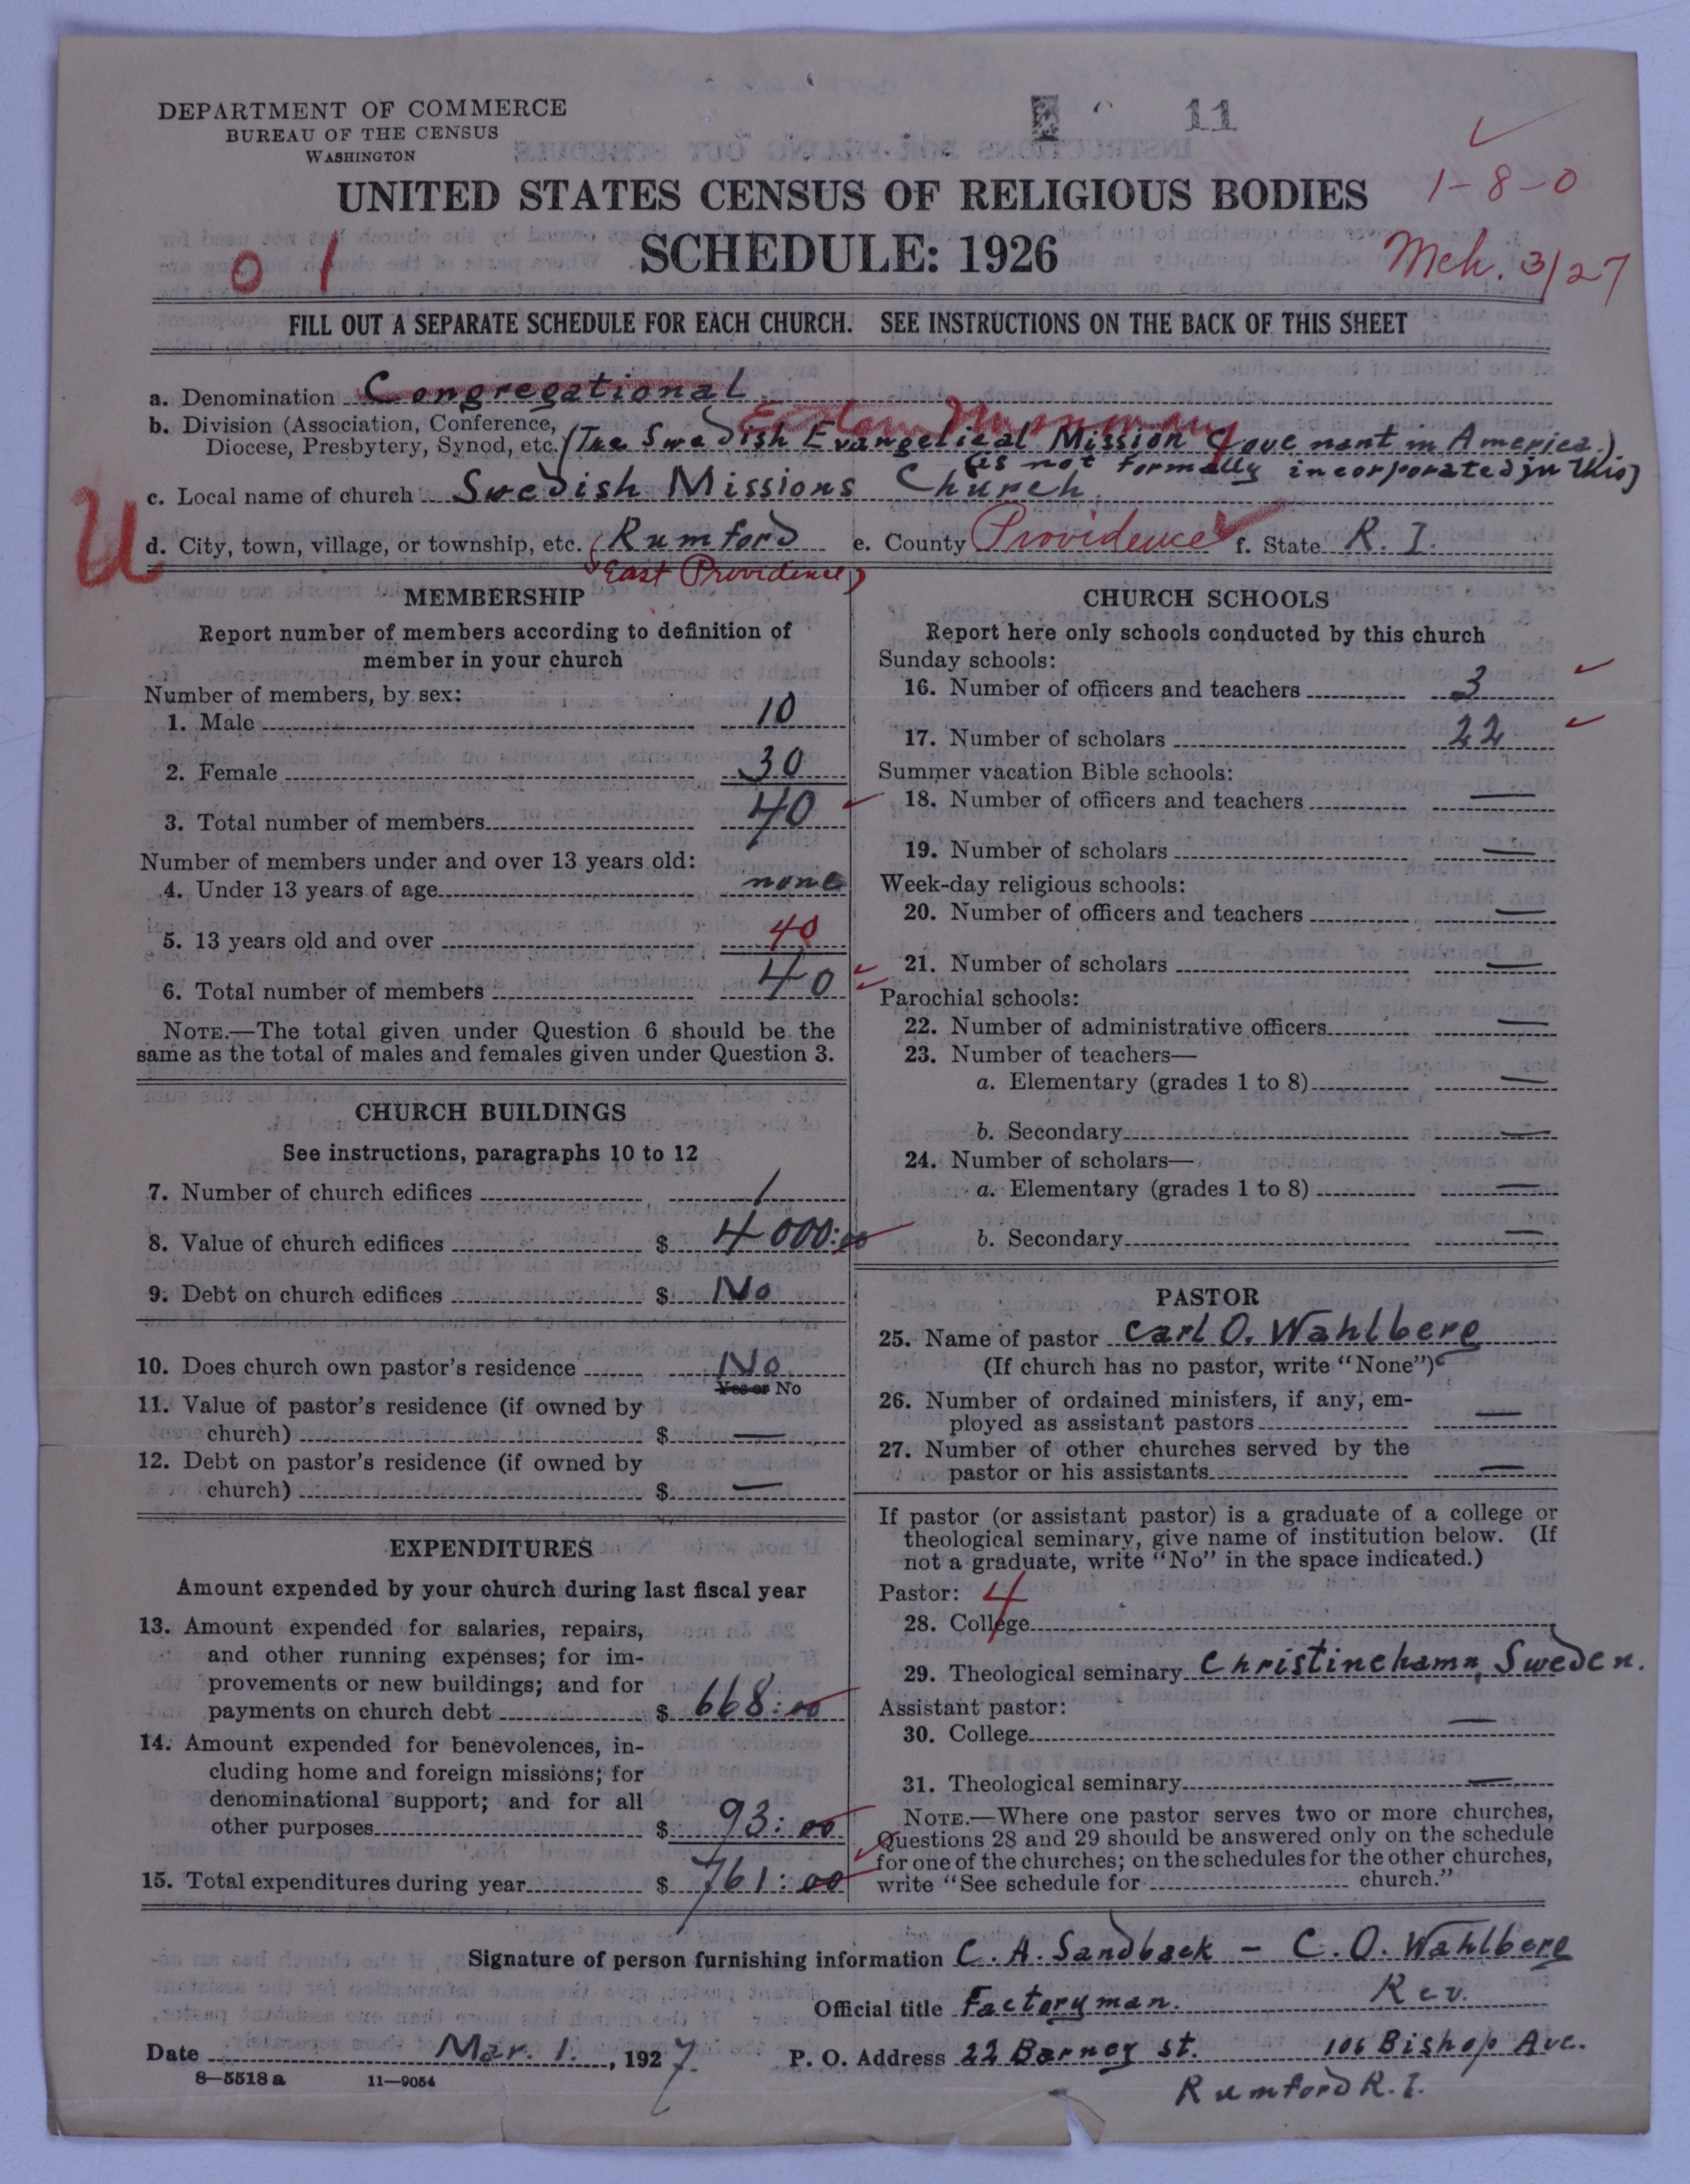 DEPARTMENT OF COMMERCE
BUREAU OF THE CENSUS
WASHINGTON
11
1-8-0
UNITED STATES CENSUS OF RELIGIOUS BODIES
SCHEDULE: 1926
01
Mch. 3/27
FILL OUT A SEPARATE SCHEDULE FOR EACH CHURCH. SEE INSTRUCTIONS ON THE BACK OF THIS SHEET
a. Denomination Congregational
Eastern Missionary
b. Division (Association, Conference,
Diocese, Presbytery, Synod, etc. (The Swedish Evangelical Mission Covenant in America.)
(is not formally incorporated in this)
c. Local name of church Swedish Missions Church
U
d. City, town, village, or township, etc. Rumford e. County Providence f. State R. I.
(East Providence)
MEMBERSHIP
Report number of members according to definition of
member in your church
Number of members, by sex:
1. Male 10
2. Female 30
3. Total number of members 40
Number of members under and over 13 years old:
4. Under 13 years of age none
5. 13 years old and over 40
6. Total number of members 40
NOTE.—The total given under Question 6 should be the
same as the total of males and females given under Question 3.
CHURCH BUILDINGS
See instructions, paragraphs 10 to 12
7. Number of church edifices 1
8. Value of church edifices $ 4000:00
9. Debt on church edifices $ No
10. Does church own pastor's residence No
Yes or No
11. Value of pastor's residence (if owned by
church) $ —
12. Debt on pastor's residence (if owned by
church) $ —
EXPENDITURES
Amount expended by your church during last fiscal year
13. Amount expended for salaries, repairs,
and other running expenses; for im-
provements or new buildings; and for
payments on church debt $ 668:00
14. Amount expended for benevolences, in-
cluding home and foreign missions; for
denominational support; and for all
other purposes $ 93:00
15. Total expenditures during year $ 761:00
CHURCH SCHOOLS
Report here only schools conducted by this church
Sunday schools:
16. Number of officers and teachers 3
17. Number of scholars 22
Summer vacation Bible schools:
18. Number of officers and teachers —
19. Number of scholars —
Week-day religious schools:
20. Number of officers and teachers —
21. Number of scholars —
Parochial schools:
22. Number of administrative officers —
23. Number of teachers—
a. Elementary (grades 1 to 8) —
b. Secondary —
24. Number of scholars—
a. Elementary (grades 1 to 8) —
b. Secondary —
PASTOR
25. Name of pastor Carl O. Wahlberg
(If church has no pastor, write "None")
26. Number of ordained ministers, if any, em-
ployed as assistant pastors —
27. Number of other churches served by the
pastor or his assistants —
If pastor (or assistant pastor) is a graduate of a college or
theological seminary, give name of institution below. (If
not a graduate, write "No" in the space indicated.)
Pastor: 4
28. College
29. Theological seminary Christinehamn, Sweden.
Assistant pastor:
30. College —
31. Theological seminary —
NOTE.—Where one pastor serves two or more churches,
Questions 28 and 29 should be answered only on the schedule
for one of the churches; on the schedules for the other churches,
write "See schedule for church."
Signature of person furnishing information C. A. Sandback – C. O. Wahlberg
Official title Factoryman. Rev.
Date Mar. 1., 1927. P. O. Address 22 Barney st. 106 Bishop Ave.
8—5518a 11—9054
Rumford R. I.